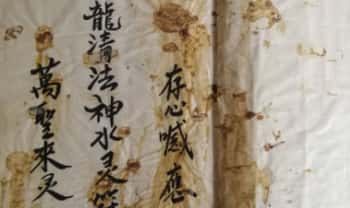 存心喊應
龍清法神水灵
萬聖來灵